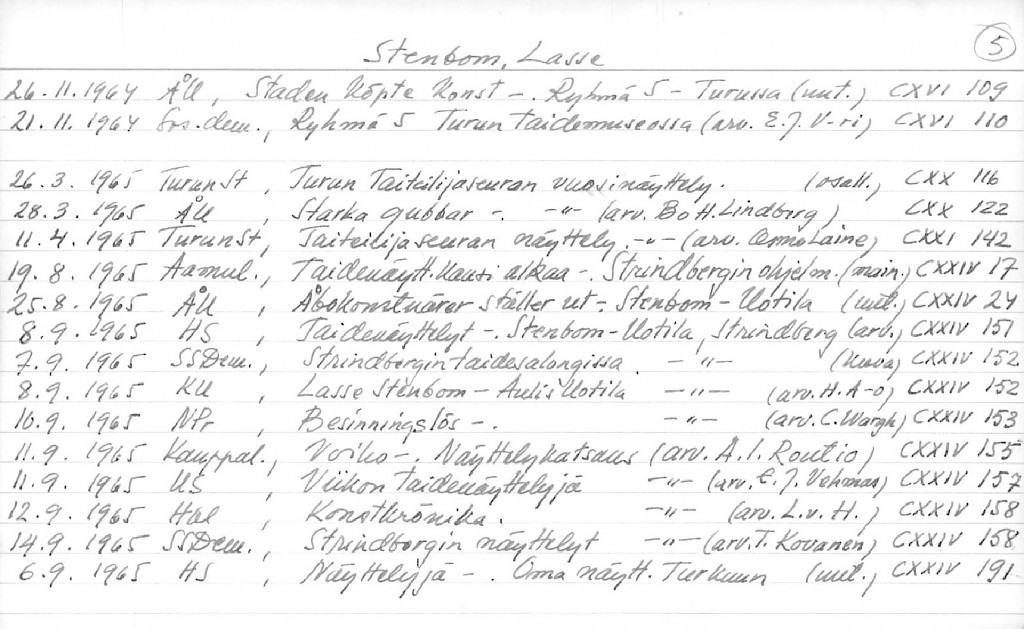 5
Stenbom, Lasse
26.11.1964 ÅU, Staden köpte konst -. Ryhmä 5 - Turussa (uut.) CXVI 109
21.11.1964 Sos.dem., Ryhmä 5 Turun taidemuseossa (arv. E.J. V-ri) CXVI 110
26.3.1965 TurunSt, Turun Taiteilijaseuran vuosinäyttely. (osall.) CXX 116
28.3.1965 ÅU, Starka gubbar -. -"- (arv. Bo H. Lindberg) CXX 122
11.4.1965 TurunSt, Taiteilijaseuran näyttely. -"- (arv. Osmo Laine) CXXI 142
19.8.1965 Aamul., Taidenäytt.kausi alkaa -. Strindbergin ohjelm. (main.) CXXIV 17
25.8.1965 ÅU, Åbokonstnärer ställer ut - Stenbom - Uotila (uut.) CXXIV 24
8.9.1965 HS, Taidenäyttelyt -. Stenbom - Uotila, Strindberg (arv.) CXXIV 151
7.9.1965 SSDem., Strindbergin taidesalongissa. -"- (kuva) CXXIV 152
8.9.1965 KU Lasse Stenbom - Aulis Uotila -"- (arv. H. A-o) CXXIV 152
10.9.1965 NPr, Besinningslös -. -"- (arv. C. Wargh) CXXIV 153
11.9.1965 Kauppal., Voiko -. Näyttelykatsaus (arv. A.I. Routio) CXXIV 155
11.9.1965 US, Viikon taidenäyttelyjä -"- (arv. E.J. Vehmas) CXXIV 157
12.9.1965 Hbl, Konstkrönika. -"- (arv. L.v.H.) CXXIV 158
14.9.1965 SSDem., Strindbergin näyttelyt -"- (arv. T. Kovanen) CXXIV 158
6.9.1965 HS, Näyttelyjä -. Oma näytt. Turkuun (uut.) CXXIV 191